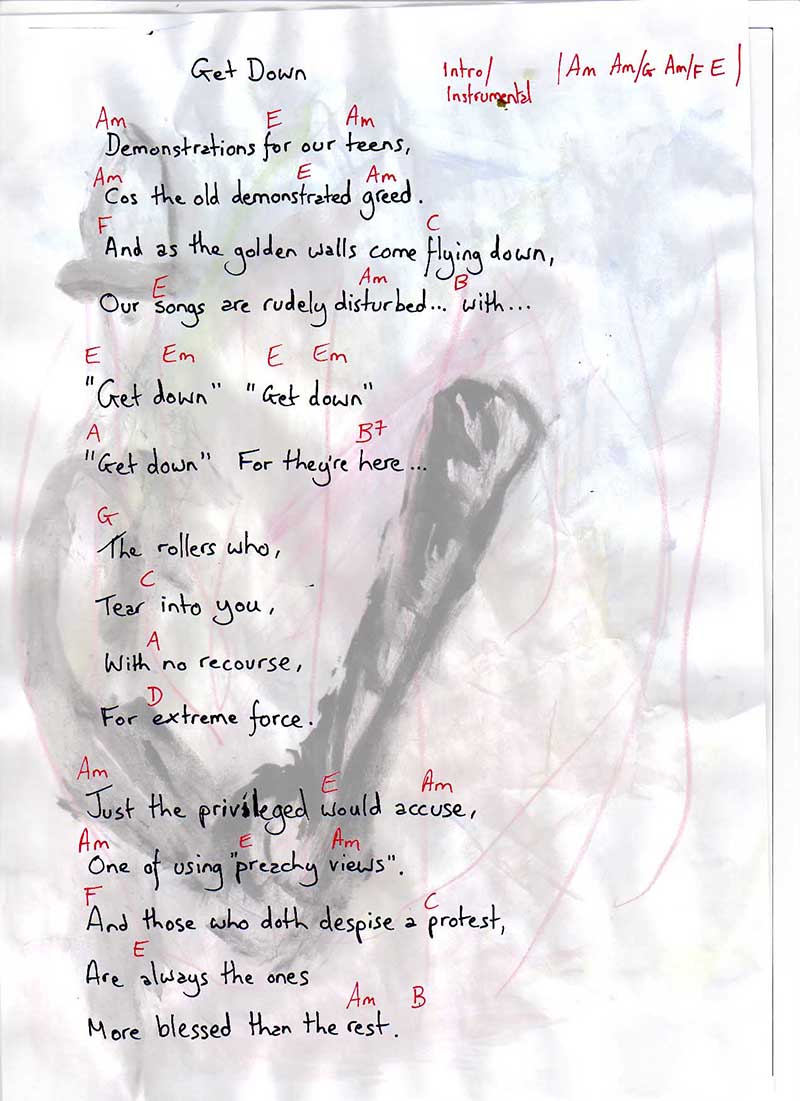 Get Down
Intro/ | Am Am/G Am/F E |
Instrumental
Am E Am
Demonstrations for our teens,
Am E Am
Cos the old demonstrated greed.
F C
And as the golden walls come flying down,
E Am B
Our songs are rudely disturbed... with...
E Em E Em
"Get down" "Get down"
A B7
"Get down" For they're here...
G
The rollers who,
C
Tear into you,
A
With no recourse,
D
For extreme force.
Am E Am
Just the privileged would accuse,
Am E Am
One of using "preachy views".
F C
And those who doth despise a protest,
E
Are always the ones
Am B
More blessed than the rest.